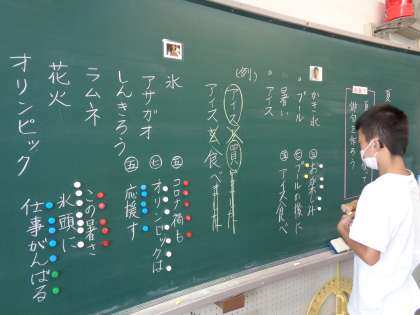 夏
俳句を作ろう
かき氷
プール
暑い
アイス
㊄ お楽しみ
㊆ プールの後に
㊄ アイス食べ
(例)
アイス
アイスを食べ
氷
アサガオ
しんきろう
ラムネ
花火
オリンピック
㊄ コロナ禍も
㊆ オリンロックは
㊄ 応援す
この暑さ
氷頭に
仕事がんばる